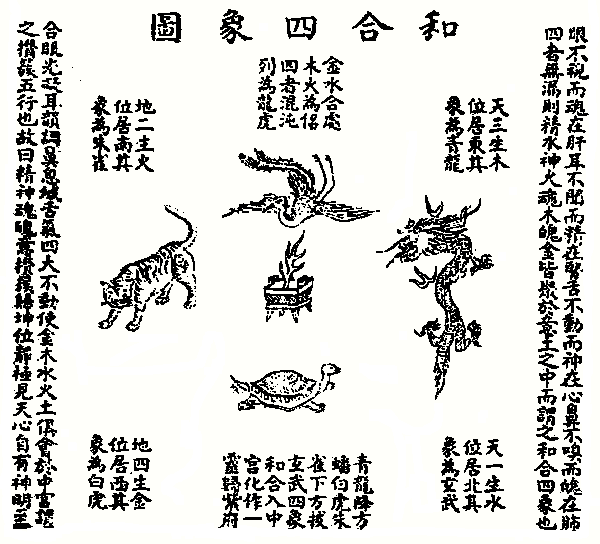 和合四象圖
眼不視而魂在肝耳不聞而精在腎舌不動而神在心鼻不嗅而魄在肺
四者無漏則精水神火魂木魄金皆聚於意土之中而謂之和合四象也
天三生木
位居東其
象為青龍
天一生水
位居北其
象為玄武
金水合處
木火為侶
四者混沌
列為龍虎
青龍降方
蟠白虎朱
雀下方拔
玄武四象
和合入中
宮化作一
靈歸紫府
地二生火
位居南其
象為朱雀
地四生金
位居西其
象為白虎
合眼光凝耳韻調鼻息緘舌氣四大不動使金木水火土俱會於中宮謂
之攢簇五行也故曰精神魂魄意攢簇歸坤位靜極見天心自有神明至